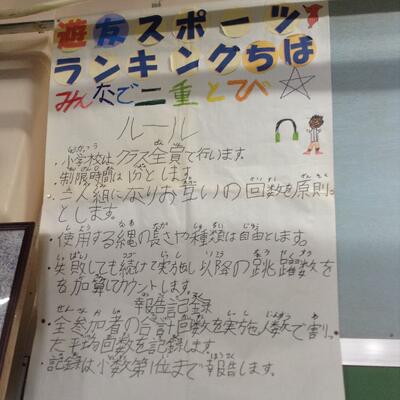 遊友スポーツ
ランキングちば
みんなで二重とび
ルール
・小学校はクラス全員で行います。
・制限時間は1分とします。
・二人組になりお互いの回数を原則
とします。
・使用する縄の長さや種類は自由とします。
・失敗しても続けて実施し以降の跳躍数を
を加算してカウントします。
報告記録
・全参加者の合計回数を実施人数で割っ
た平均回数を記録します。
・記録は小数第1位まで報告します。